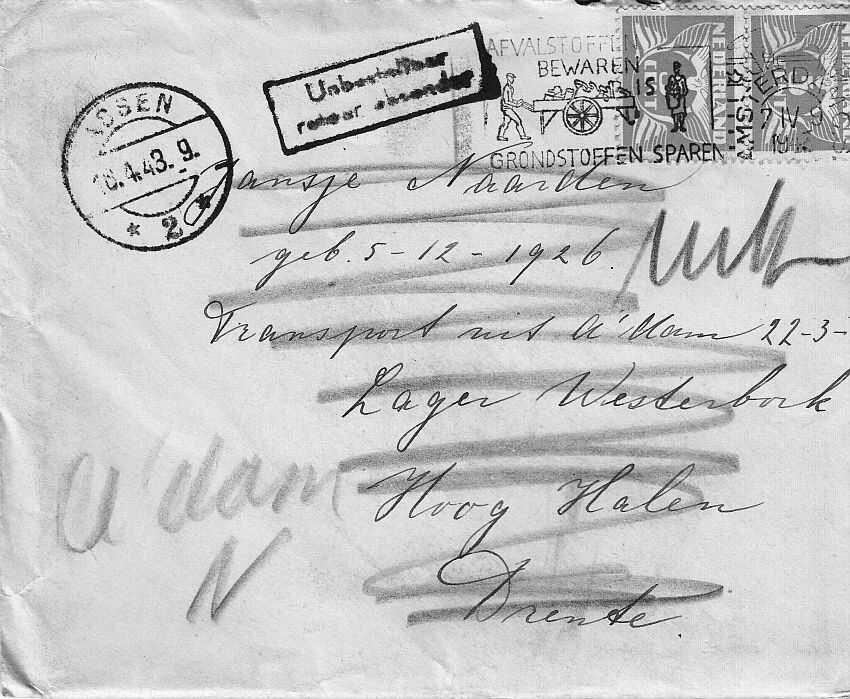 AFVALSTOFFEN
BEWAREN
IS
GRONDSTOFFEN SPAREN
Unbestellbar
retour absender
ASSEN
18.4.43. 9.
* 2 *
NEDERLAND
CENT
7 IV 9
Jansje Naarden
geb. 5-12-1926.
Transport uit A'dam 22-3-
Lager Westerbork
Hoog Halen
Drente
A'dam
N